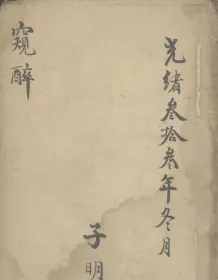 光緒叁拾叁年冬月
子明
窺醉